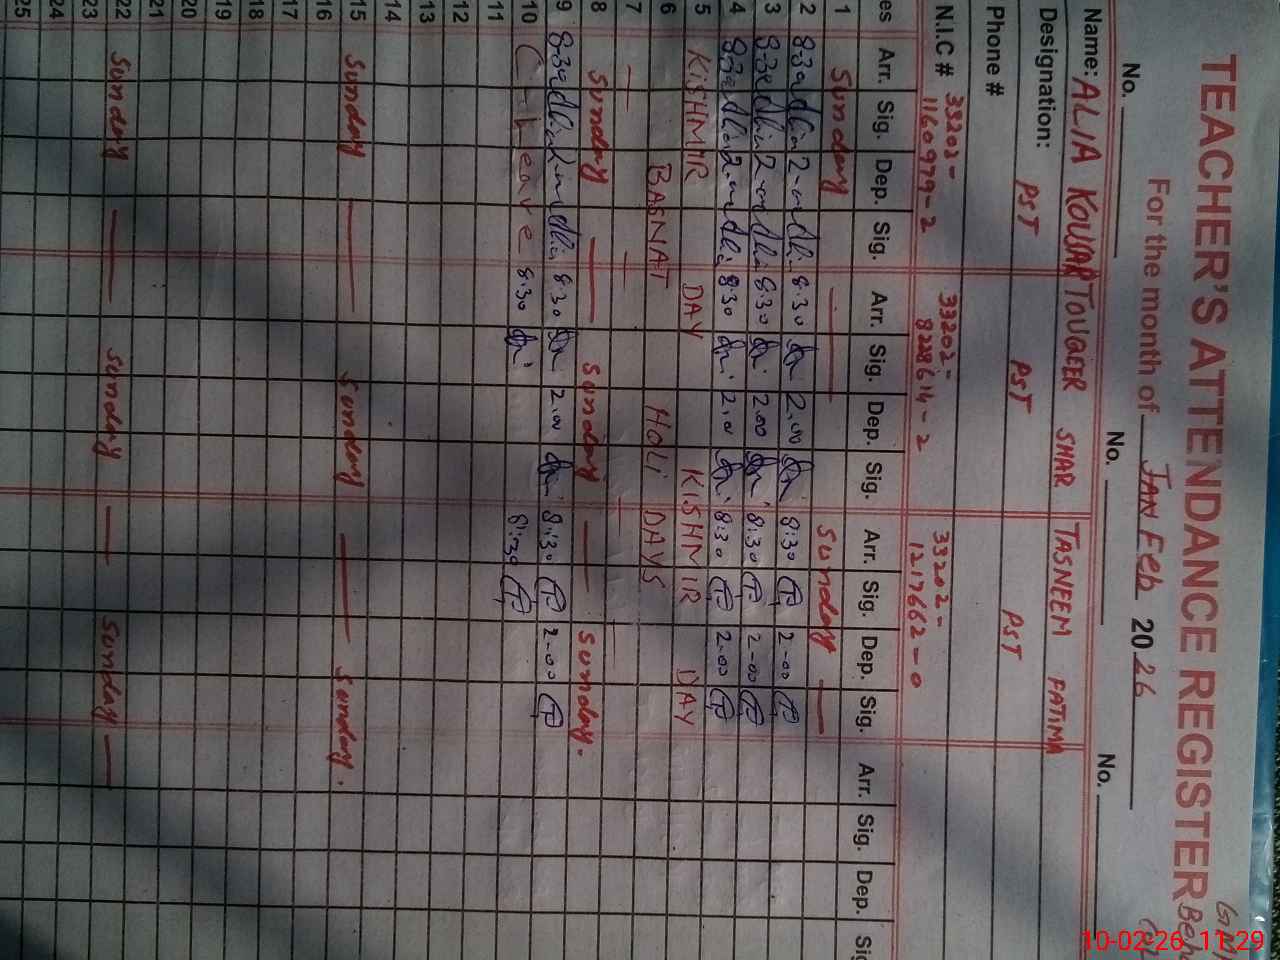 TEACHER'S ATTENDANCE REGISTER
For the month of JAN Feb 2026
No. No. No.
Name: ALIA KOUSAR TOUQEER SHAR TASNEEM FATIMA
Designation: PST PST PST
Phone #
N.I.C # 33203- 33202- 33202-
1160979-2 8228614-2 1217662-0
es Arr. Sig. Dep. Sig. Arr. Sig. Dep. Sig. Arr. Sig. Dep. Sig. Arr. Sig. Dep.
1 Sunday — — Sunday —
2 8:30 2-00 8:30 2.00 8:30 2-00
3 8:30 2-00 8:30 2.00 8:30 2-00
4 8:30 2-00 8:30 2.00 8:30 2-00
5 KISHMIR DAY KISHMIR DAY
6 BASNAT HOLI DAYS
7 — — — —
8 Sunday — Sunday — Sunday.
9 8:30 8:30 2.00 8:30 2-00
10 C-Leave 8:30 8:30
11
12
13
14
15 Sunday — Sunday — Sunday.
16
17
18
19
20
21
22 Sunday — Sunday — Sunday —
23
24
25
10-02-26 11:29